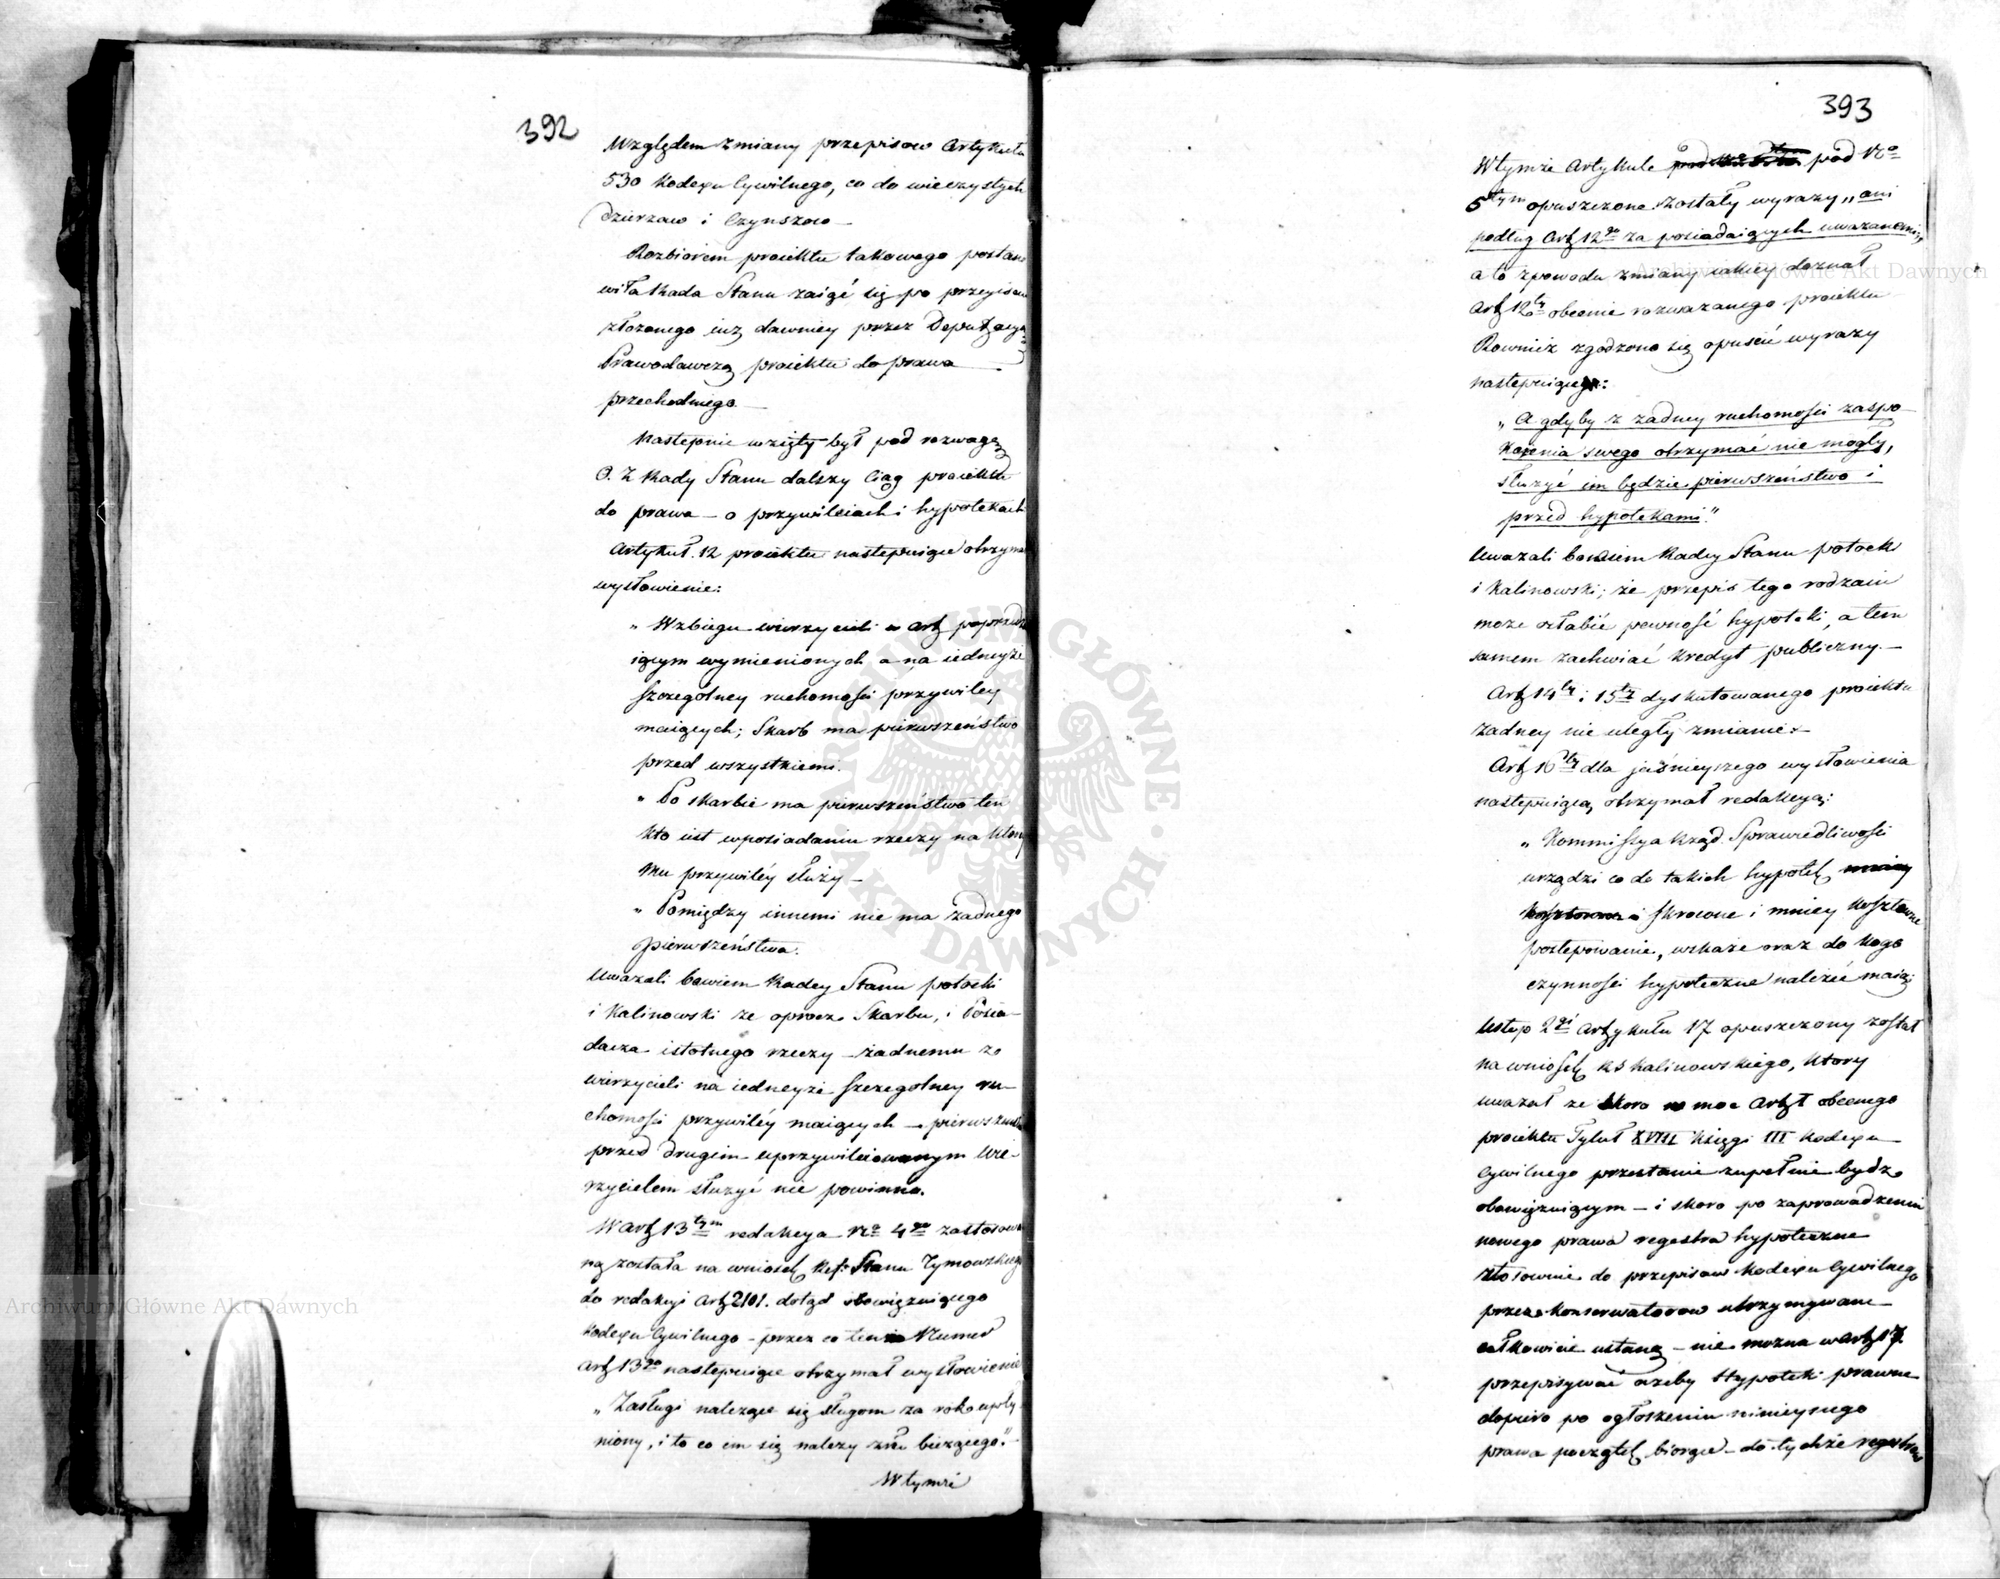 392
Względem zmiany przepisow Artykułu
530 Kodexu Cywilnego, co do wieczystych
dzierzaw i Czynszow —
Rozbiorem proiektu takowego postano
wiła Rada Stanu zaiąć się po przeyrzeniu
złożonego iuż dawniey przez Deputacyą
Prawodawczą proiektu do prawa —
przechodniego. —
Następnie wzięty był pod rozwagę
O. Z. Rady Stanu dalszy Ciąg proiektu
do prawa — o przywileiach i hypotekach
Artykuł. 12 proiektu następuiące otrzymał
wysłowienie:
„ Wzbiegu wierzycieli w art: poprzedza
iącym wymienionych a na iedneyże
szczególney ruchomości przywiley
maiących; Skarb ma pierwszeństwo
przed wszystkiemi.
„ Po skarbie ma pierwszeństwo ten
kto iest wposiadaniu rzeczy na któréy
mu przywiléy służy —
„ Pomiędzy innemi nie ma żadnego
pierwszeństwa.
Uważali bowiem Radcy Stanu potocki
i Kalinowski że oprocz Skarbu, i Posia-
dacza istotnego rzeczy — żadnemu ze
wierzycieli na iedneyże szczegolney ru-
chomości przywiléy maiących — pierwszeństwo
przed drugim uprzywileiowanym wie-
rzycielem służyć nie powinno.
W art 13tym redakcya No 4go zastosowa
ną została na wniosek Ref: Stanu Tymowskiego
do redakcyi art 2101. dotąd obowiązuiącego
Kodexu Cywilnego — przez co tenże Numer
art 13go następuiące otrzymał wysłowienie
„ Zasługi należące się sługom za rok upły
niony, i to co im się należy z roku bieżącego." —
W tymże
393
W tymże Artykule pod No
5tym opuszczone zostały wyrazy „ani
podług Art 12go za posiadaiących uważanemi„
a to z powodu zmiany iakiey doznał
Art 12ty obecnie rozważanego proiektu
Rownież zgodzono się opuścić wyrazy
następuiące:
„ A gdyby z żadney ruchomości zaspo-
koienia swego otrzymać nie mogły,
służyć im będzie pierwszeństwo i
przed hypotekami."
Uważali bowiem Radcy Stanu potocki
i Kalinowski; że przepis tego rodzaiu
może osłabić pewność hypoteki, a tem
samem zachwiać kredyt publiczny. —
Art 14ty i 15ty dyskutowanego proiektu
żadney nie uległy zmianie. —
Art 16ty dla jaśnieyszego wysłowienia
następuiącą otrzymał redakcyą:
„ Kommissya Rząd. Sprawiedliwości
urządzi co do takich hypotek mniey
kosztowne i skrocone i mniey kosztowne
postępowanie, wskaże oraz do kogo
czynności hypoteczne należeć maią;
Ustęp 2gi Artykułu 17 opuszczony został
na wniosek RS Kalinowskiego, ktory
uważał że skoro w moc Art 1 obecnego
proiektu Tytuł XVIII Księgi III Kodexu
Cywilnego przestanie zupełnie bydz
obowiązuiącym — i skoro po zaprowadzeniu
nowego prawa regestra hypoteczne
stosownie do przepisow Kodexu Cywilnego
przez Konserwatorow utrzymywane
całkowicie ustaną — nie można w art 17.
przepisywać ażeby Hypoteki prawne
dopiero po ogłoszeniu ninieyszego
prawa początek biorące — do tychże regestrow